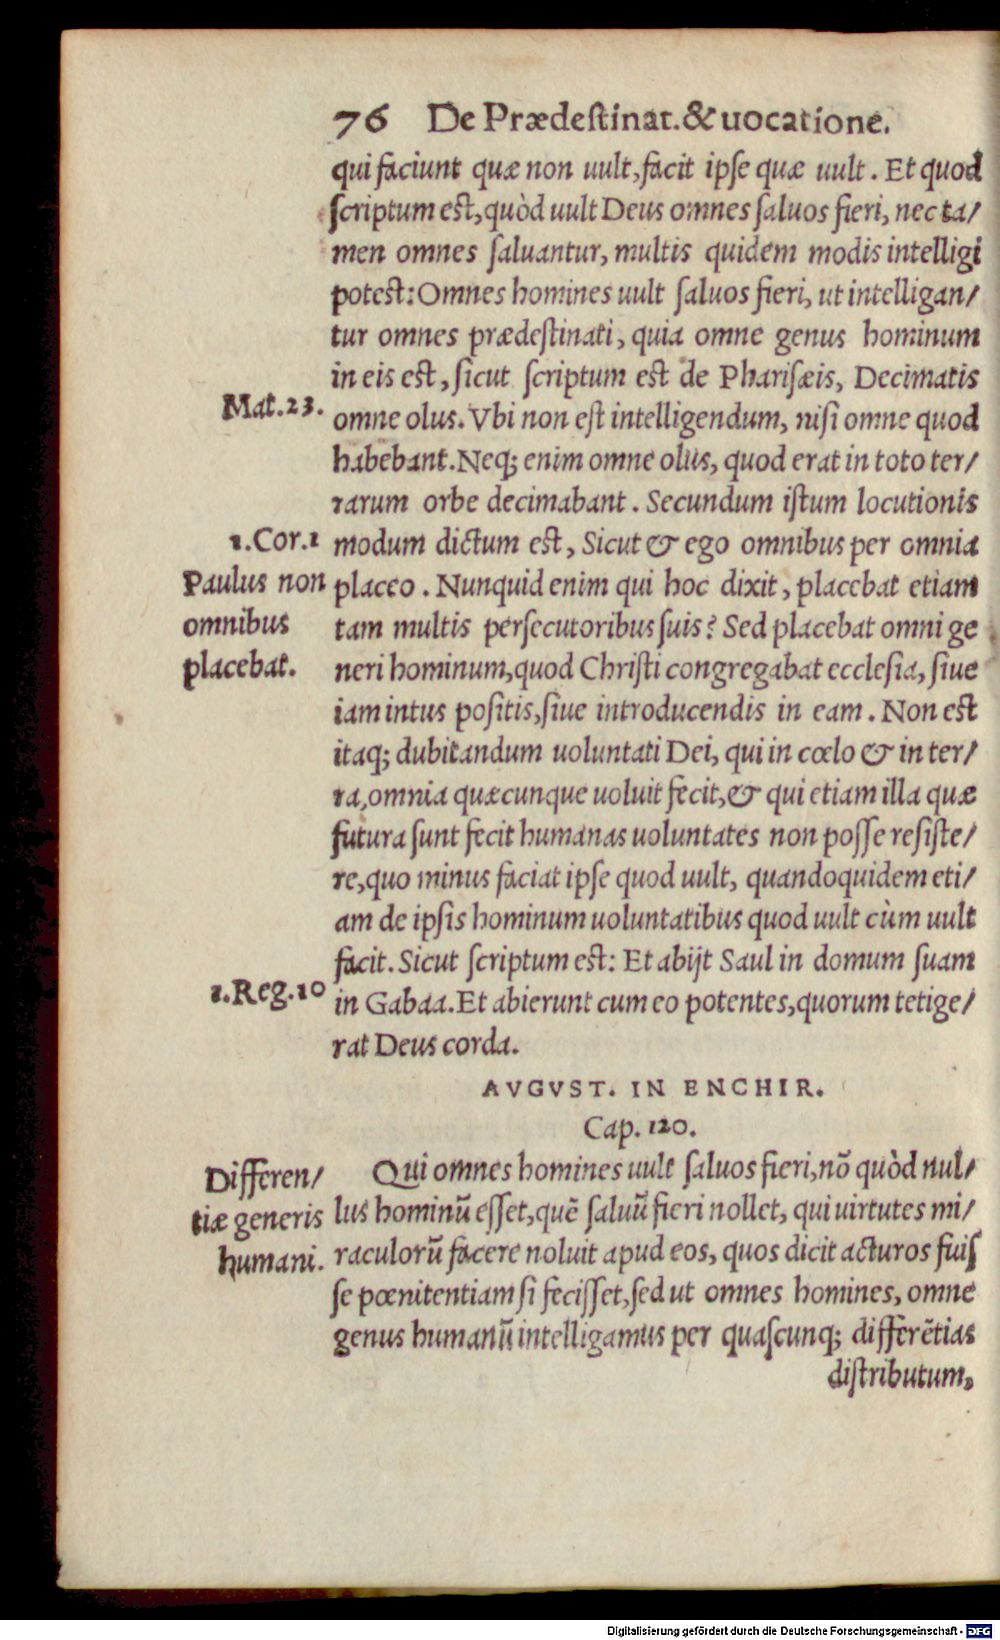 76 De Prædestinat. & uocatione.
qui faciunt quæ non uult, facit ipſe quæ uult. Et quod
ſcriptum est, quòd uult Deus omnes ſaluos fieri, nec ta/
men omnes ſaluantur, multis quidem modis intelligi
potest: Omnes homines uult ſaluos fieri, ut intelligan/
tur omnes prædeſtinati, quia omne genus hominum
in eis est, ſicut ſcriptum est de Phariſæis, Decimatis
Mat.23.
omne olus. Vbi non est intelligendum, niſi omne quod
habebant. Neq; enim omne olus, quod erat in toto ter/
rarum orbe decimabant. Secundum iſtum locutionis
1.Cor.1
modum dictum est, Sicut & ego omnibus per omnia
Paulus non
omnibus
placebat.
placeo. Nunquid enim qui hoc dixit, placebat etiam
tam multis perſecutoribus ſuis? Sed placebat omni ge
neri hominum, quod Chriſti congregabat eccleſia, ſiue
iam intus poſitis, ſiue introducendis in eam. Non est
itaq; dubitandum uoluntati Dei, qui in cœlo & in ter/
ra, omnia quæcunque uoluit fecit, & qui etiam illa quæ
futura ſunt fecit humanas uoluntates non poſſe reſiſte/
re, quo minus faciat ipſe quod uult, quandoquidem eti/
am de ipſis hominum uoluntatibus quod uult cùm uult
facit. Sicut ſcriptum est: Et abijt Saul in domum ſuam
1.Reg.10
in Gabaa. Et abierunt cum eo potentes, quorum tetige/
rat Deus corda.
AVGVST. IN ENCHIR.
Cap. 120.
Differen/
tiæ generis
humani.
Qui omnes homines uult ſaluos fieri, nō quòd nul/
lus hominū eſſet, quē ſaluū fieri nollet, qui uirtutes mi/
raculorū facere noluit apud eos, quos dicit acturos fuiſ
ſe pœnitentiam ſi feciſſet, ſed ut omnes homines, omne
genus humanū intelligamus per quaſcunq; differētias
diſtributum,
Digitalisierung gefördert durch die Deutsche Forschungsgemeinschaft - DFG